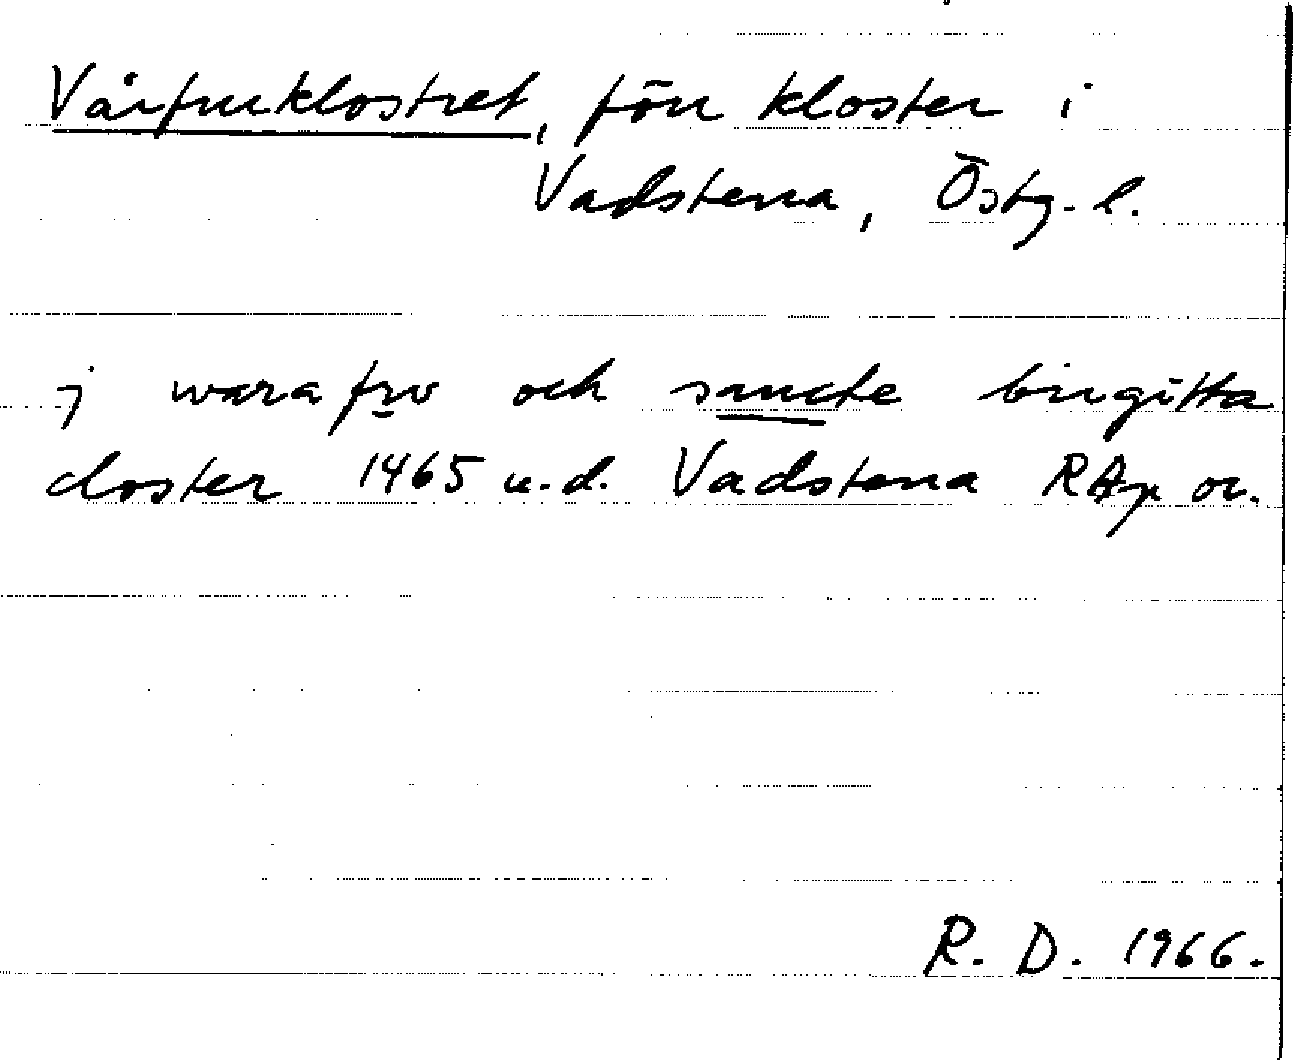 Vårfruklostret, förr kloster i
Vadstena, Östg. l.
j wara frv och sancte birgitta
closter 1465 u.d. Vadstena RAp or.
R. D. 1966.